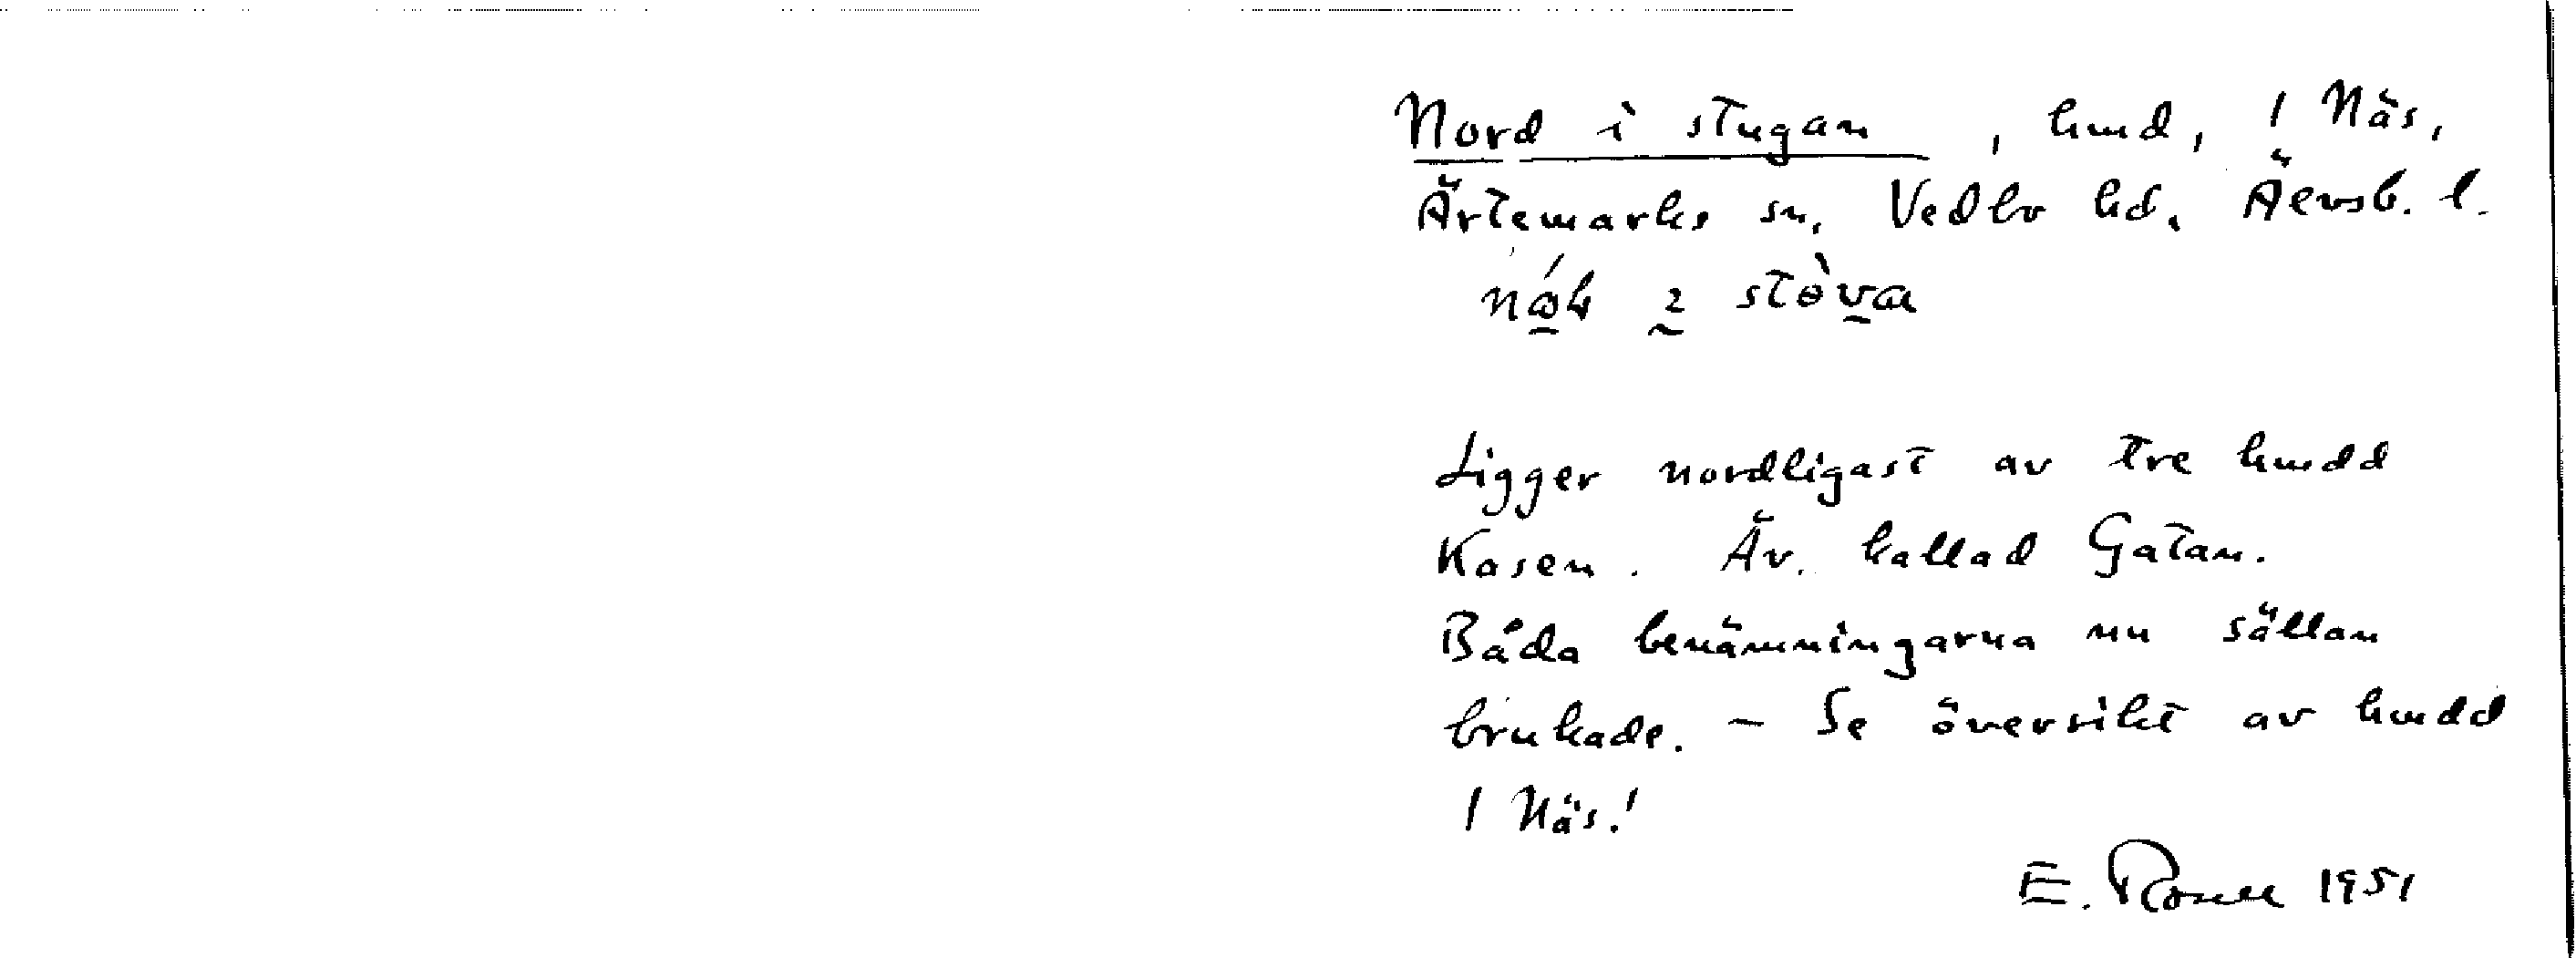 Nord i stugan, hmd, 1 Näs,
Ärtemarks sn, Vedbo hd, Älvsb. l.
Ligger nordligast av tre hmdd
Kasen. Äv. kallad Gatan.
Båda benämningarna nu sällan
brukade. – Se översikt av hmdd
1 Näs!
E. 1951